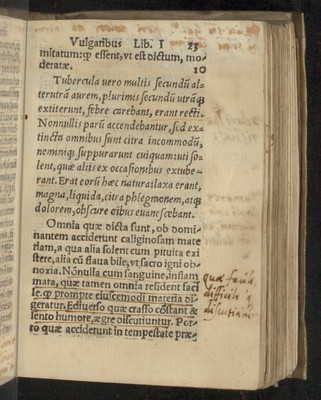 Vulgaribus Lib. I 23
mitatum:ꝙ essent, vt est dictum, mo-
deratæ. 10
Tubercula uero multis secundũ al-
terutrã aurem, plurimis secundũ utrãq;
extiterunt, febre carebant, erant recti.
Nonnullis parũ accendebantur, sed ex-
tincta omnibus sunt citra incommodũ,
nemniq; suppurarunt cuiquam: uti so-
lent, quæ aliis ex occasionibus extube-
rant. Erat eorũ hæc natura: laxa erant,
magna, liquida, citra phlegmonem, atq;
dolorem, obscure oĩbus euanescebant.
Omnia quæ dicta sunt, ob domi-
nantem acciderunt caliginosam mate
riam, a qua alia solent cum pituita exi
stere, alia cũ flaua bile, vt sacro igni ob-
noxia. Nõnulla cum sanguine, inflam
mata, quæ tamen omnia resident faci
le, ꝙ prompte eiuscemodi materia di-
geratur. Ediuerso quæ crasso cõstant &
lento humore, ægre discutiuntur. Por-
ro quæ acciderunt in tempestate præ-
difficile